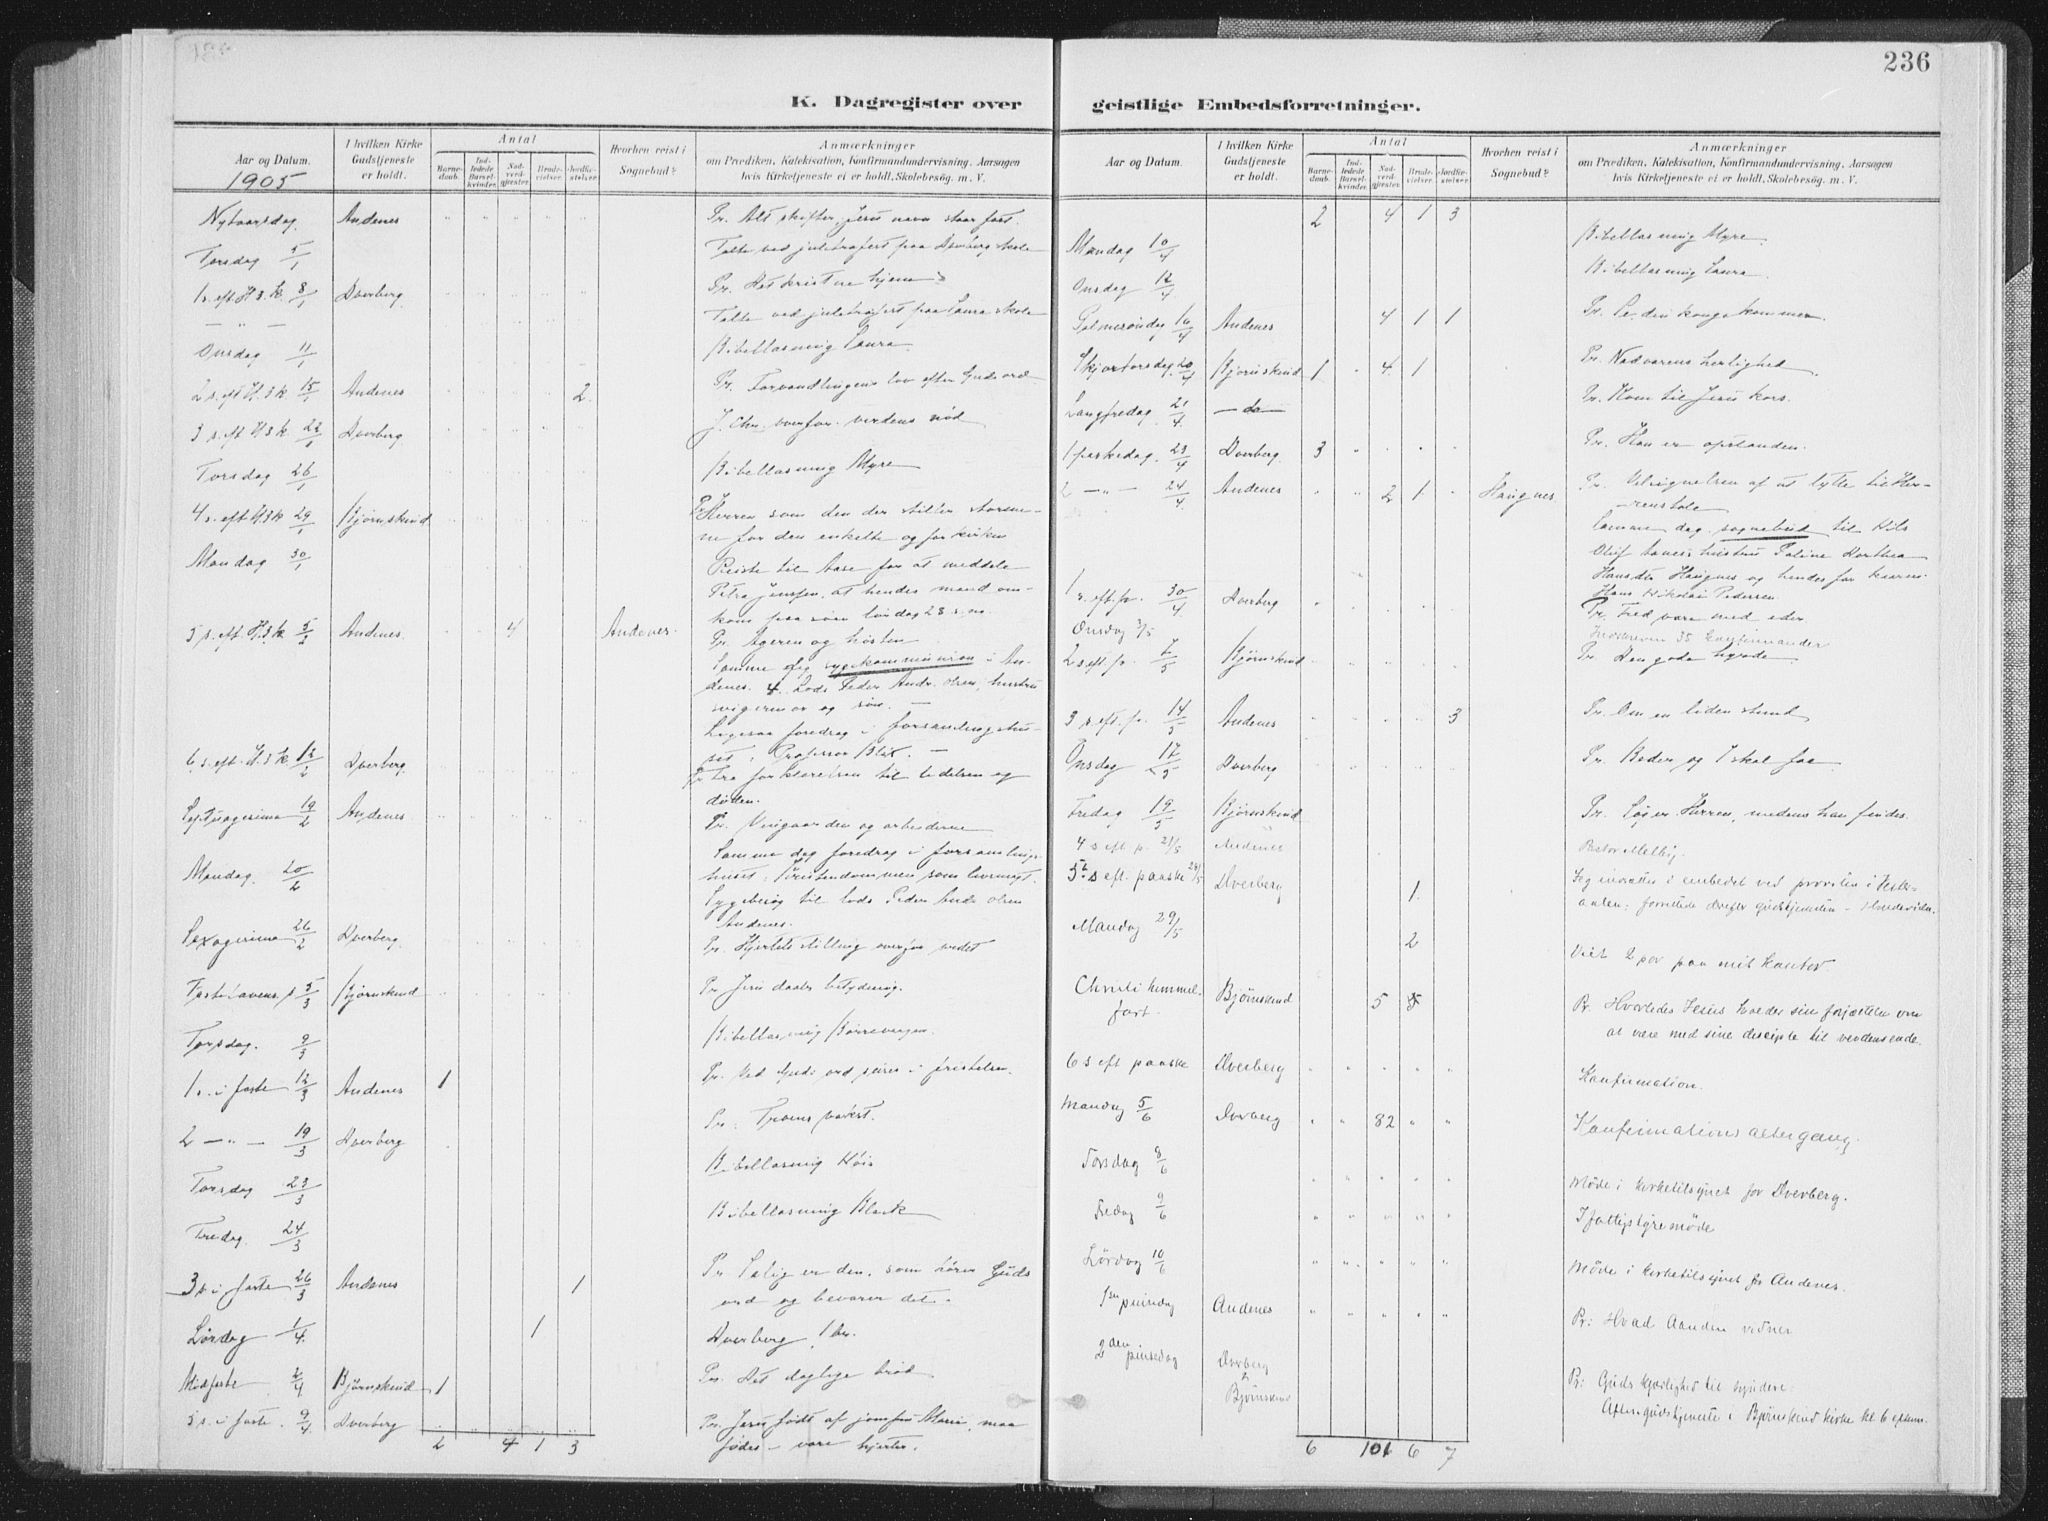 236
K. Dagregister over
Aar og Datum.
1905
I hvilken Kirke Gudstjeneste er holdt.
Antal
Barnedaab.
Indledede Barselkvinder.
Nadverdgjester.
Brudevielser.
Jordfæstelser.
Hvorhen reist i Sognebud?
Anmærkninger
om Prædiken, Katekisation, Konfirmandundervisning, Aarsagen
hvis Kirketjeneste ei er holdt, Skolebesøg, m. V.
Nytaarsdag. Andenes Pr. Alt skifter, Jesu navn staar fast.
Torsdag 5/1 Talte ved juletræfest paa Dverberg skole
1 s. eft. H. 3. k. 8/1 Dverberg. Pr. Det kristne hjem
— " — Talte ved juletræfest paa Saura skole
Onsdag 11/1 Bibellæsning Saura.
2 s. eft H. 3 k 15/1 Andenes 2. Pr. Forvandlingens lov efter Guds ord
3 s. eft H 3 k. 22/1 Dverberg J. Chr. overfor verdens nød
Torsdag 26/1 Bibellæsning Myre
4 s. eft H. 3 k 29/1 Bjørnskind Pr. Herren som den der stiller stormene
for den enkelte og for kirken
Mandag 30/1 Reiste til Aase for at meddele
Petra Jensen, at hendes mand omkom
paa søen lørdag 28 s. m.
5 s. eft. H. 3 k 5/2 Andenes. 4 Andenes. Pr. Ageren og høsten
Samme dag sygekommunion i Andenes.
4. Lods Peder Andr. Olsen, hustru
svigermor og søn. —
Ligesaa foredrag i forsamlingshuset
: Professor Blix. —
6. s. eft. H. 3 k. 12/2 Dverberg. Pr. Fra forklarelsen til lidelsen og
døden.
Septuagesima 19/2 Andenes Pr. Vingaarden og arbeiderne
Samme dag foredrag i forsamlingshuset
: Kristendommen som livsmagt.
Mandag. 20/2 Sygebesøg til lods Peder Andr Olsen
Andenes.
Sexagesima 26/2 Dverberg. Pr. Hjertets stilling overfor ordet
Fastelavens s 5/3 Bjørnskind Pr. Jesu daabs betydning.
Torsdag. 9/3 Bibellæsning
1 s. i faste 12/3 Andenes 1 Pr. Ved Guds ord seires i fristelsen.
2 — " — 19/3 Dverberg Pr: Troens vækst.
Torsdag 23/3 Bibellæsning
Fredag. 24/3 Bibellæsning Bleik
3 s. i faste 26/3 Andenes 1 Pr. Salig er den, som hører Guds
ord og bevarer det.
Lørdag 1/4. 1 Dverberg 1 br.
Midfaste 2/4 Bjørnskind 1 Pr. Det daglige brød
5 s. i faste. 9/4. Dverberg Pr. Jesus født af jomfru Maria, maa
fødes i vore hjerter.
2 4 1 3
geistlige Embedsforretninger.
Aar og Datum.
I hvilken Kirke Gudstjeneste er holdt.
Antal
Barnedaab.
Indledede Barselkvinder.
Nadverdgjester.
Brudevielser.
Jordfæstelser.
Hvorhen reist i Sognebud?
Anmærkninger
om Prædiken, Katekisation, Konfirmandundervisning, Aarsagen
hvis Kirketjeneste ei er holdt, Skolebesøg, m. V.
2 4 1 3
Mandag 10/4 Bibellæsning Myre
Onsdag 12/4 Bibellæsning Saura.
Palmesøndag 16/4 Andenes 4 1 1 Pr. Se, din konge kommer.
Skjærtorsdag. 20/4 Bjørnskind 1 4. 1 Pr. Nadverens herlighed
Langfredag. 21/4. — do — Pr. Kom til Jesu kors.
1 paaskedag. 23/4 Dverberg. 3 Pr. Han er opstanden.
2 — " — 24/4 Andenes 2 1. Haugnes Pr. Velsignelsen af at lytte til Herrens
tale
Samme dag sognebud til Nils
Oluf hustru Haline Dorthea
Hansdtr Haugnes og hendes far
Hans Nikolai Pedersen.
1 s. eft. p. 30/4 Dverberg Pr. Fred være med eder.
Onsdag 3/5 Indskreven 35 konfirmander
2 s. eft. p. 7/5 Bjørnskind Pr. Den gode hyrde
3 s. eft. p. 14/5 Andenes 3 Pr. Om en liden stund
Onsdag 17/5 Dverberg Pr. Beder og I skal faa
Fredag 19/5 Bjørnskind Pr. Søger Herren, medens han findes.
4 s eft p. 21/5 Andenes Pastor Melby.
5te s eft. paaske 28/5 Dverberg 1. Jeg insættes i embedet ved provsten i Vesteraalen:
forrettede derefter gudstjenesten
Mandag 29/5 2 Viet 2 par paa mit kontor
Christi himmelfart. Bjørnskind 5 Pr. Hvorledes Jesus holder sin forjættelse om
at være med sine disciple til verdens ende.
6 s eft paaske Dverberg Konfirmation.
Mandag 5/6 Dverberg 82 Konfirmations altergang.
Torsdag 8/6 Møde i kirketilsynet for Dverberg.
Fredag 9/6 I fattigstyremøde
Lørdag 10/6 Møde i kirketilsynet for Andenes.
1ste pinsedag Andenes Pr: Hvad Aanden vidner
2den pinsedag Dverberg & Bjørnskind Pr: Guds kjærlighed til syndere.
Aftengudstjeneste i Bjørnskind kirke kl 6 eftem.
6 101 6 7